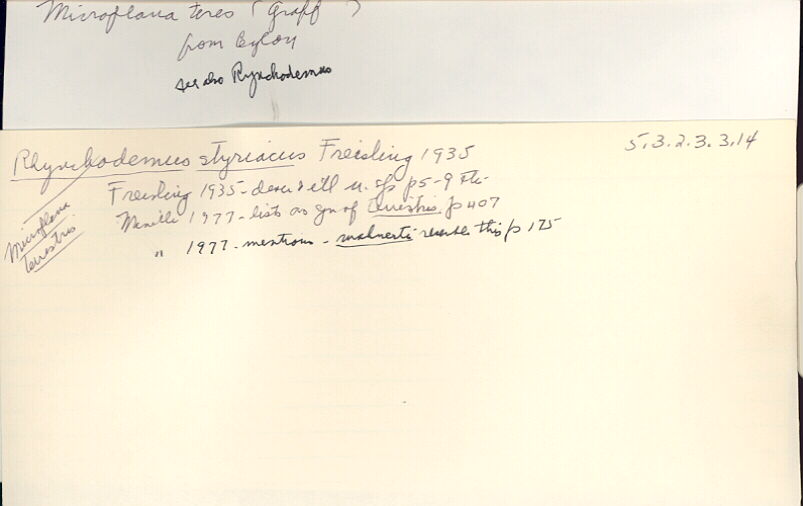 Microplana teres (Graff )
from Ceylon
see also Rhynchodemus
5.3.2.3.3.14
Rhynchodemus styriacus Freisling 1935
Freisling 1935 - descr & ill n. sp p5-9
Minelli 1977 - lists as syn of terrestris p 407
" 1977 - mentions - resembles this p 175
Microplana
terrestris